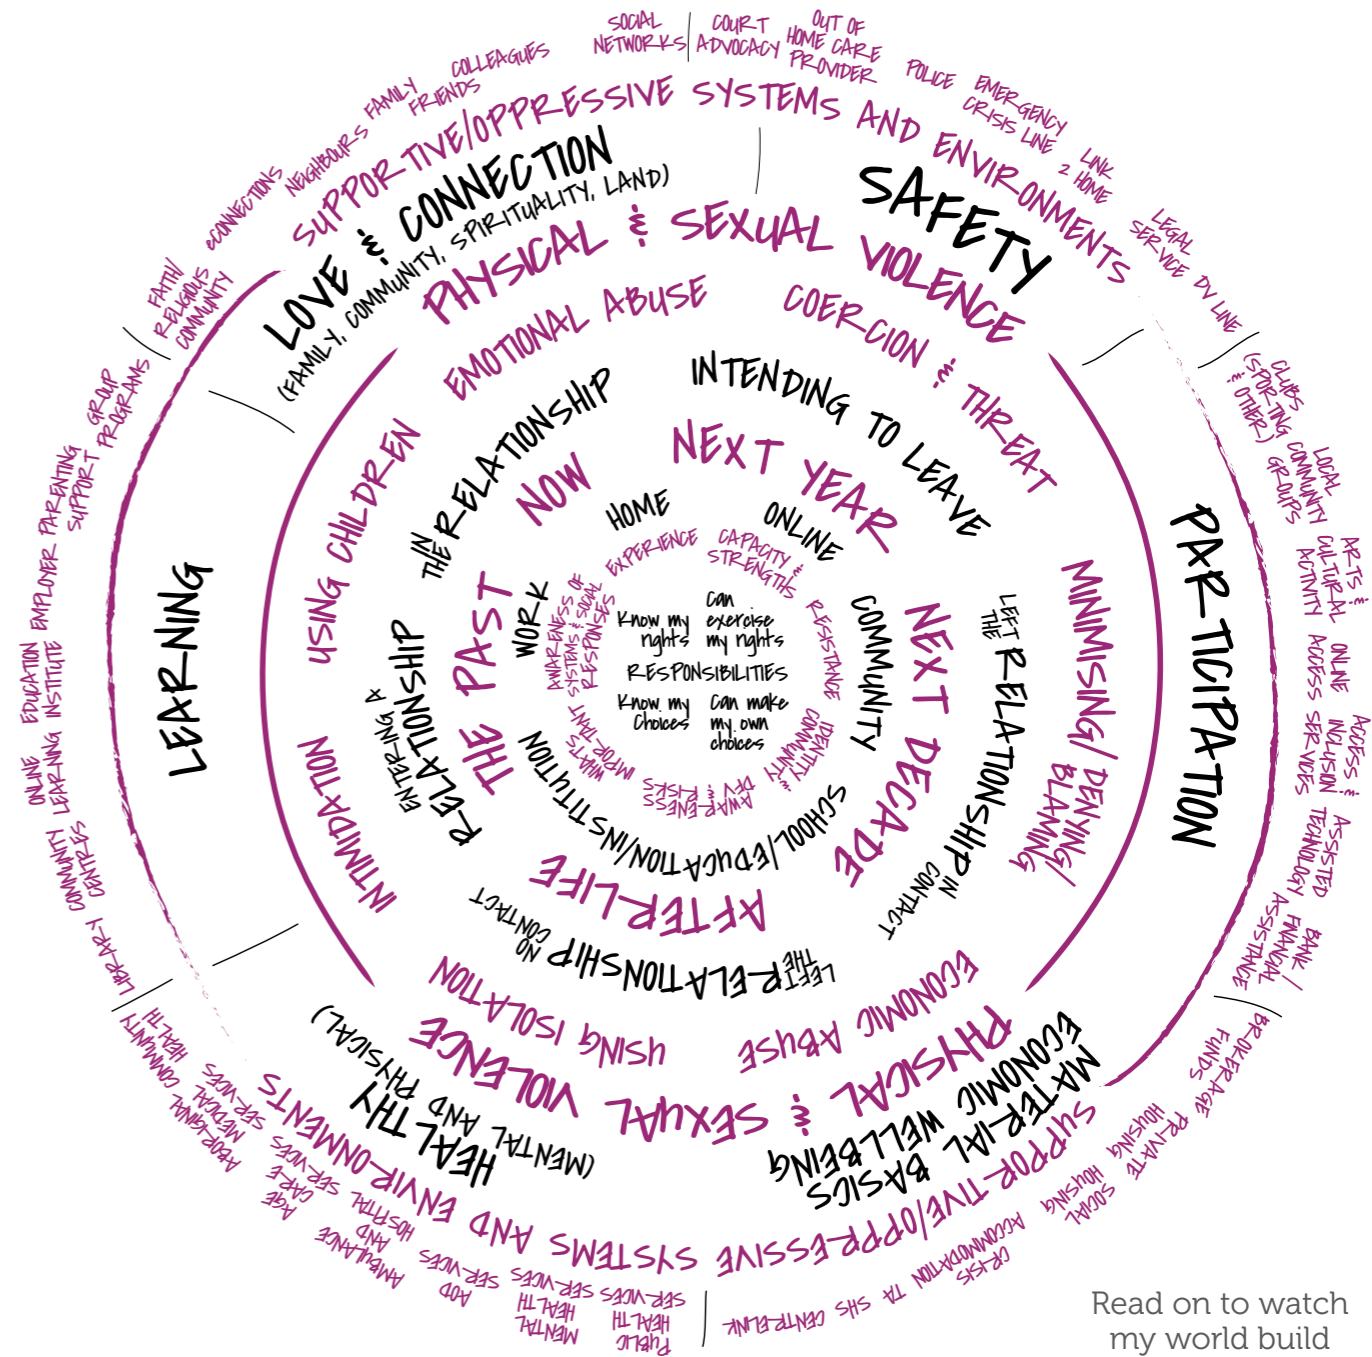 SOCIAL
NETWORKS
COURT
ADVOCACY
OUT OF
HOME CARE
PROVIDER
POLICE
EMERGENCY
CRISIS LINE
LINK
2 HOME
LEGAL
SERVICE
DV LINE
CLUBS
(SPORTING
& OTHER)
LOCAL
COMMUNITY
GROUPS
ARTS &
CULTURAL
ACTIVITY
ONLINE
ACCESS
ACCESS &
INCLUSION
SERVICES
ASSISTED
TECHNOLOGY
BANK /
FINANCIAL
ASSISTANCE
BROKERAGE
FUNDS
PRIVATE
HOUSING
SOCIAL
HOUSING
CRISIS
ACCOMMODATION
TA
SHS
CENTRELINK
PUBLIC
HEALTH
SERVICES
MENTAL
HEALTH
SERVICES
AOD
SERVICES
AMBULANCE
AND
HOSPITAL
AGE
CARE
SERVICES
ABORIGINAL
MEDICAL
SERVICES
COMMUNITY
HEALTH
LIBRARY
COMMUNITY
CENTRES
ONLINE
LEARNING
EDUCATION
INSTITUTE
EMPLOYER
PARENTING
SUPPORT
GROUP
PROGRAMS
FAITH/
RELIGIOUS
COMMUNITY
eCONNECTIONS
NEIGHBOURS
FAMILY
FRIENDS
COLLEAGUES
SUPPORTIVE/OPPRESSIVE SYSTEMS AND ENVIRONMENTS
SUPPORTIVE/OPPRESSIVE SYSTEMS AND ENVIRONMENTS
LOVE & CONNECTION
(FAMILY, COMMUNITY, SPIRITUALITY, LAND)
SAFETY
PARTICIPATION
MATERIAL BASICS
ECONOMIC WELLBEING
HEALTHY
(MENTAL AND PHYSICAL)
LEARNING
PHYSICAL & SEXUAL VIOLENCE
PHYSICAL & SEXUAL VIOLENCE
EMOTIONAL ABUSE
COERCION & THREAT
MINIMISING/ DENYING/
BLAMING
ECONOMIC ABUSE
USING ISOLATION
INTIMIDATION
USING CHILDREN
IN
THE RELATIONSHIP
INTENDING TO LEAVE
LEFT
THE RELATIONSHIP IN
CONTACT
LEFT
THE RELATIONSHIP NO
CONTACT
ENTERING A
RELATIONSHIP
NOW
NEXT YEAR
NEXT DECADE
AFTERLIFE
THE PAST
HOME
ONLINE
COMMUNITY
SCHOOL/EDUCATION/INSTITUTION
WORK
EXPERIENCE
CAPACITY &
STRENGTHS
RESISTANCE
IDENTITY &
COMMUNITY
AWARENESS
DFV & RISKS
WHATS
IMPORTANT
AWARENESS OF
SYSTEMS & SOCIAL
RESPONSES
Know my
rights
Can
exercise
my rights
RESPONSIBILITIES
Know my
Choices
Can make
my own
choices
Read on to watch
my world build